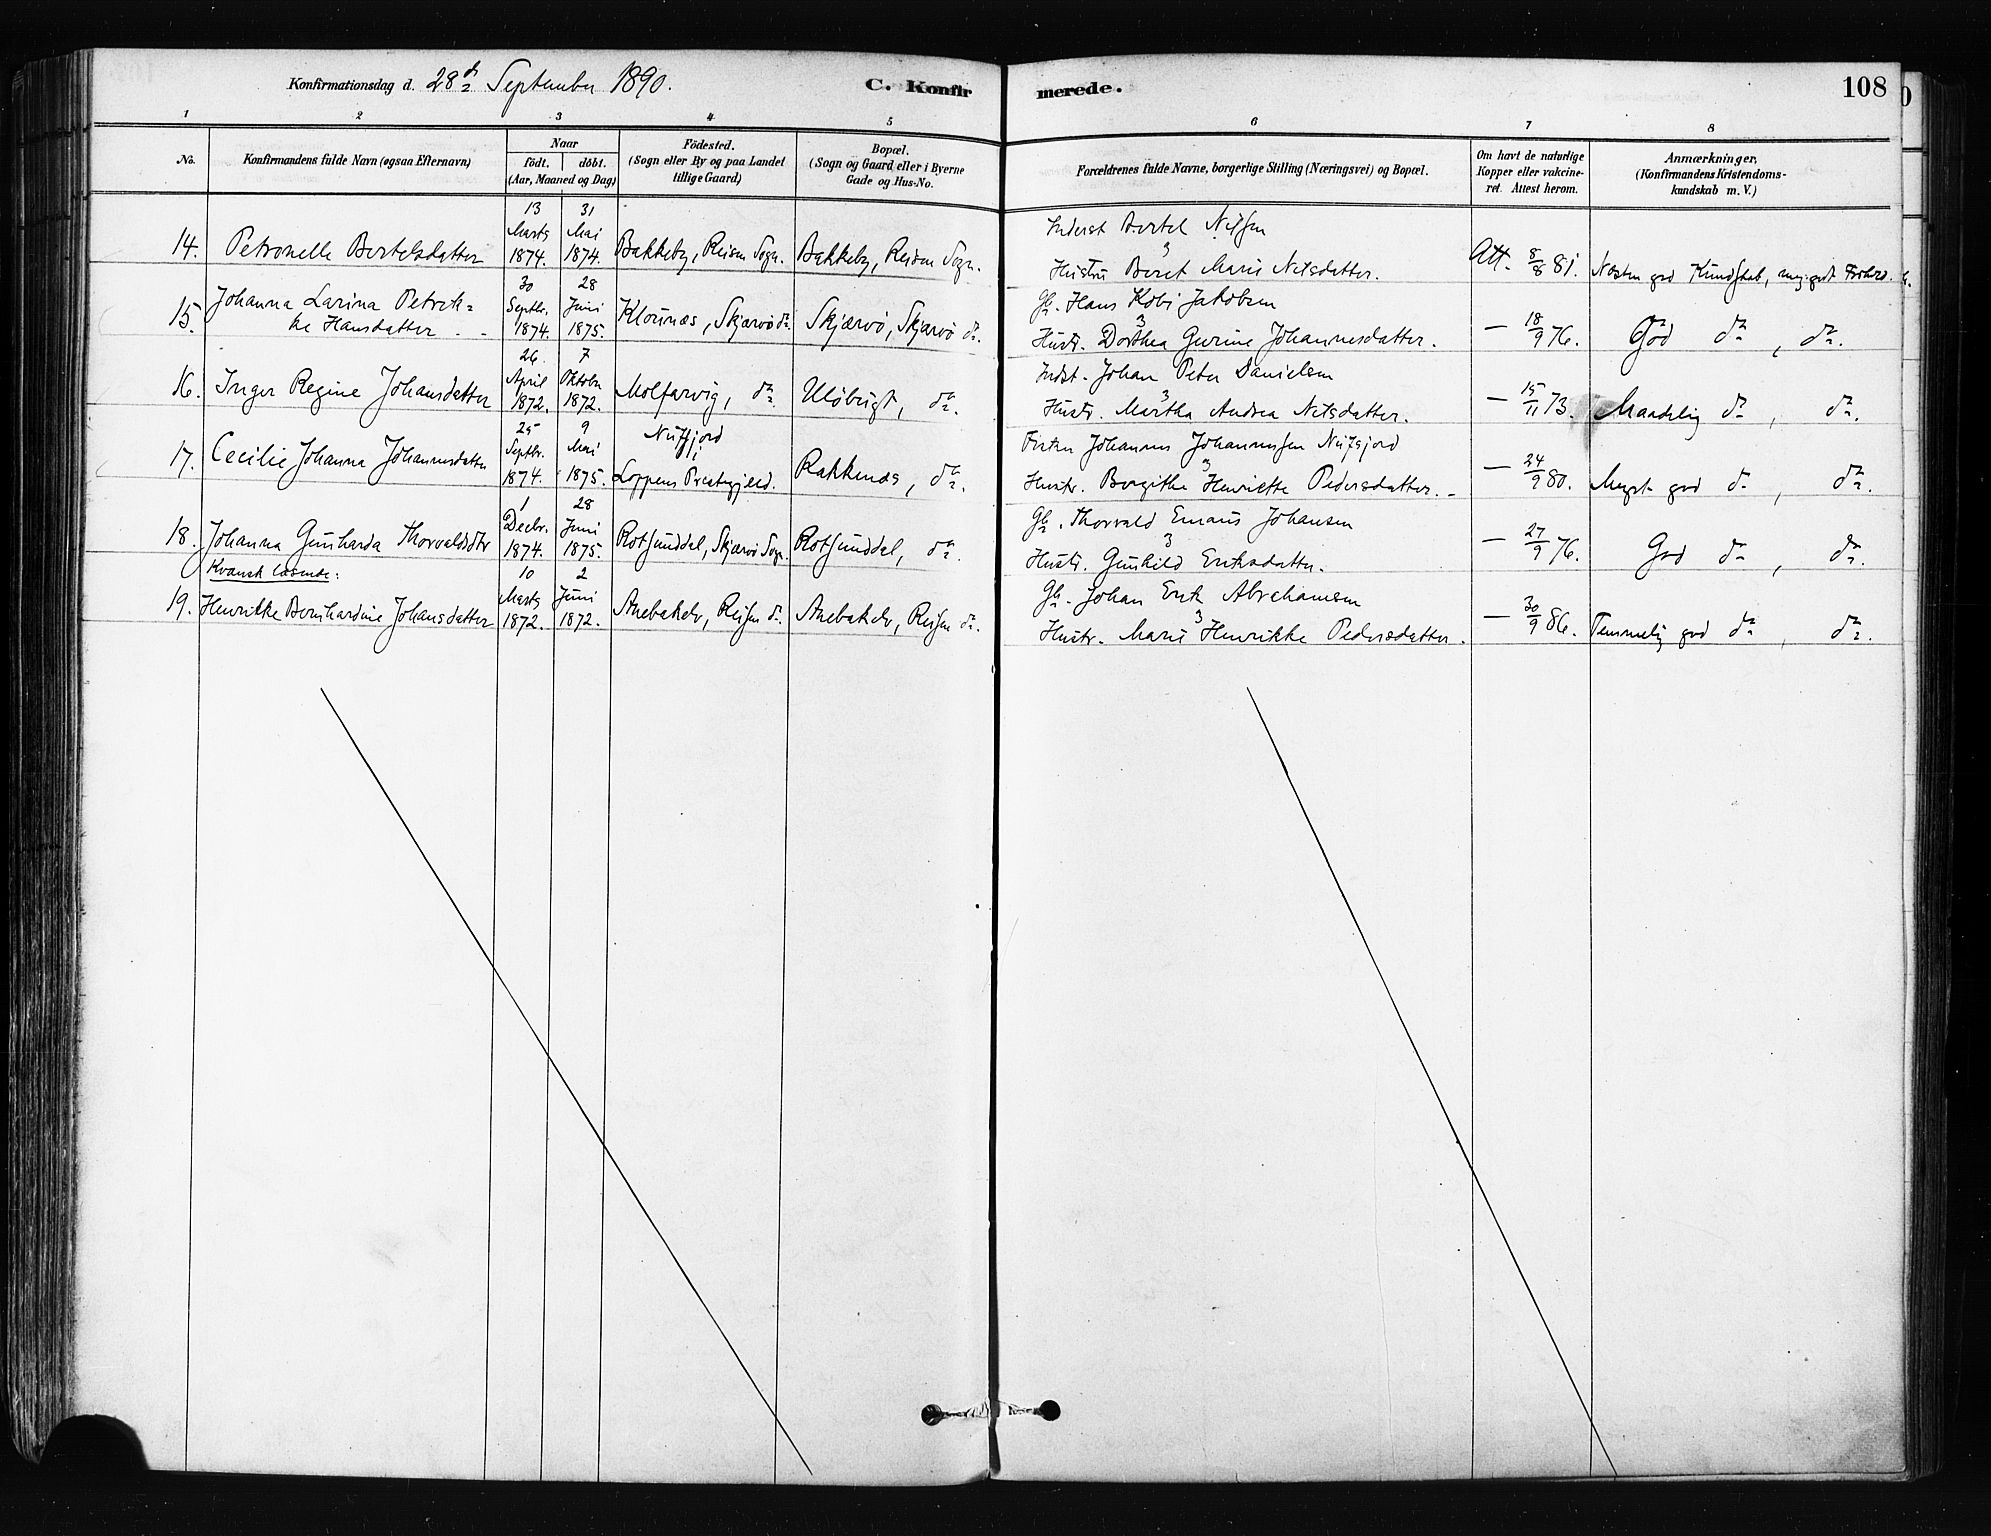 Konfirmationsdag d. 28de September 1890.
C. Konfirmerede.
108
1 2 3 4 5 6 7 8
No.
Konfirmandens fulde Navn (ogsaa Efternavn)
Naar
födt. döbt.
(Aar, Maaned og Dag)
Födested.
(Sogn eller By og paa Landet
tillige Gaard)
Bopæl.
(Sogn og Gaard eller i Byerne
Gade og Hus-No.
Forældrenes fulde Navne, borgerlige Stilling (Næringsvei) og Bopæl.
Om havt de naturlige
Kopper eller vakcine-
ret. Attest herom.
Anmærkninger,
(Konfirmandens Kristendoms-
kundskab m. V.)
14. Petronelle Bertelsdatter
13 Marts 1874. 31 Mai 1874.
Bakkeby, Reisen Sogn.
Bakkeby, Reisen Sogn.
Inderst Bertel Nilsen
Hustru Beret Maris Nilsdatter.
Att. 8/8 81.
Næsten god Kundskab, meg. godt Forhold.
15. Johanna Larina Petrik=
ke Hansdatter
30 Septbr. 1874. 28 Juni 1875.
Klounæs, Skjærvö do.
Skjærvö, Skjærvö do.
Gb. Hans Kobi Jakobsen
Hustr. Dorthea Gurine Johannesdatter.
— 18/9 76.
God do, do.
16. Inger Regine Johansdatter
26 April 1872. 7 Oktober 1872.
Molfarvig, do.
Ulöbugt, do.
Indst. Johan Peter Danielsen
Hustr. Martha Andrea Nilsdatter.
— 15/11 73.
Maadelig do, do.
17. Cecilie Johanna Johannesdatter
25 Septbr. 1874. 9 Mai 1875.
Nuffjord
Loppens Præstegjeld.
Rakkenæs, do.
Johannes Johannessen Nufsjord
Hustr. Borgithe Henriette Pedersdatter.
— 24/9 80.
Meget god do, do.
18. Johanna Gunharda Thorvaldsdtr
1 Decbr. 1874. 28 Juni 1875.
Rotsunddal, Skjærvö Sogn.
Rotsunddal, do.
Gb. Thorvald Emaus Johansen
Hustr. Gunhild Eriksdatter.
— 27/9 76.
God do, do.
Kvænsk læsende:
19. Henrikke Bernhardine Johansdatter
10 Marts 1872. 2 Juni 1872.
Anebakelv, Reisen do.
Anebakelv, Reisen do.
Gb. Johan Erik Abrahamsen
Hustr. Maris Henrikke Pedersdatter.
— 30/9 86.
Temmelig god do, do.